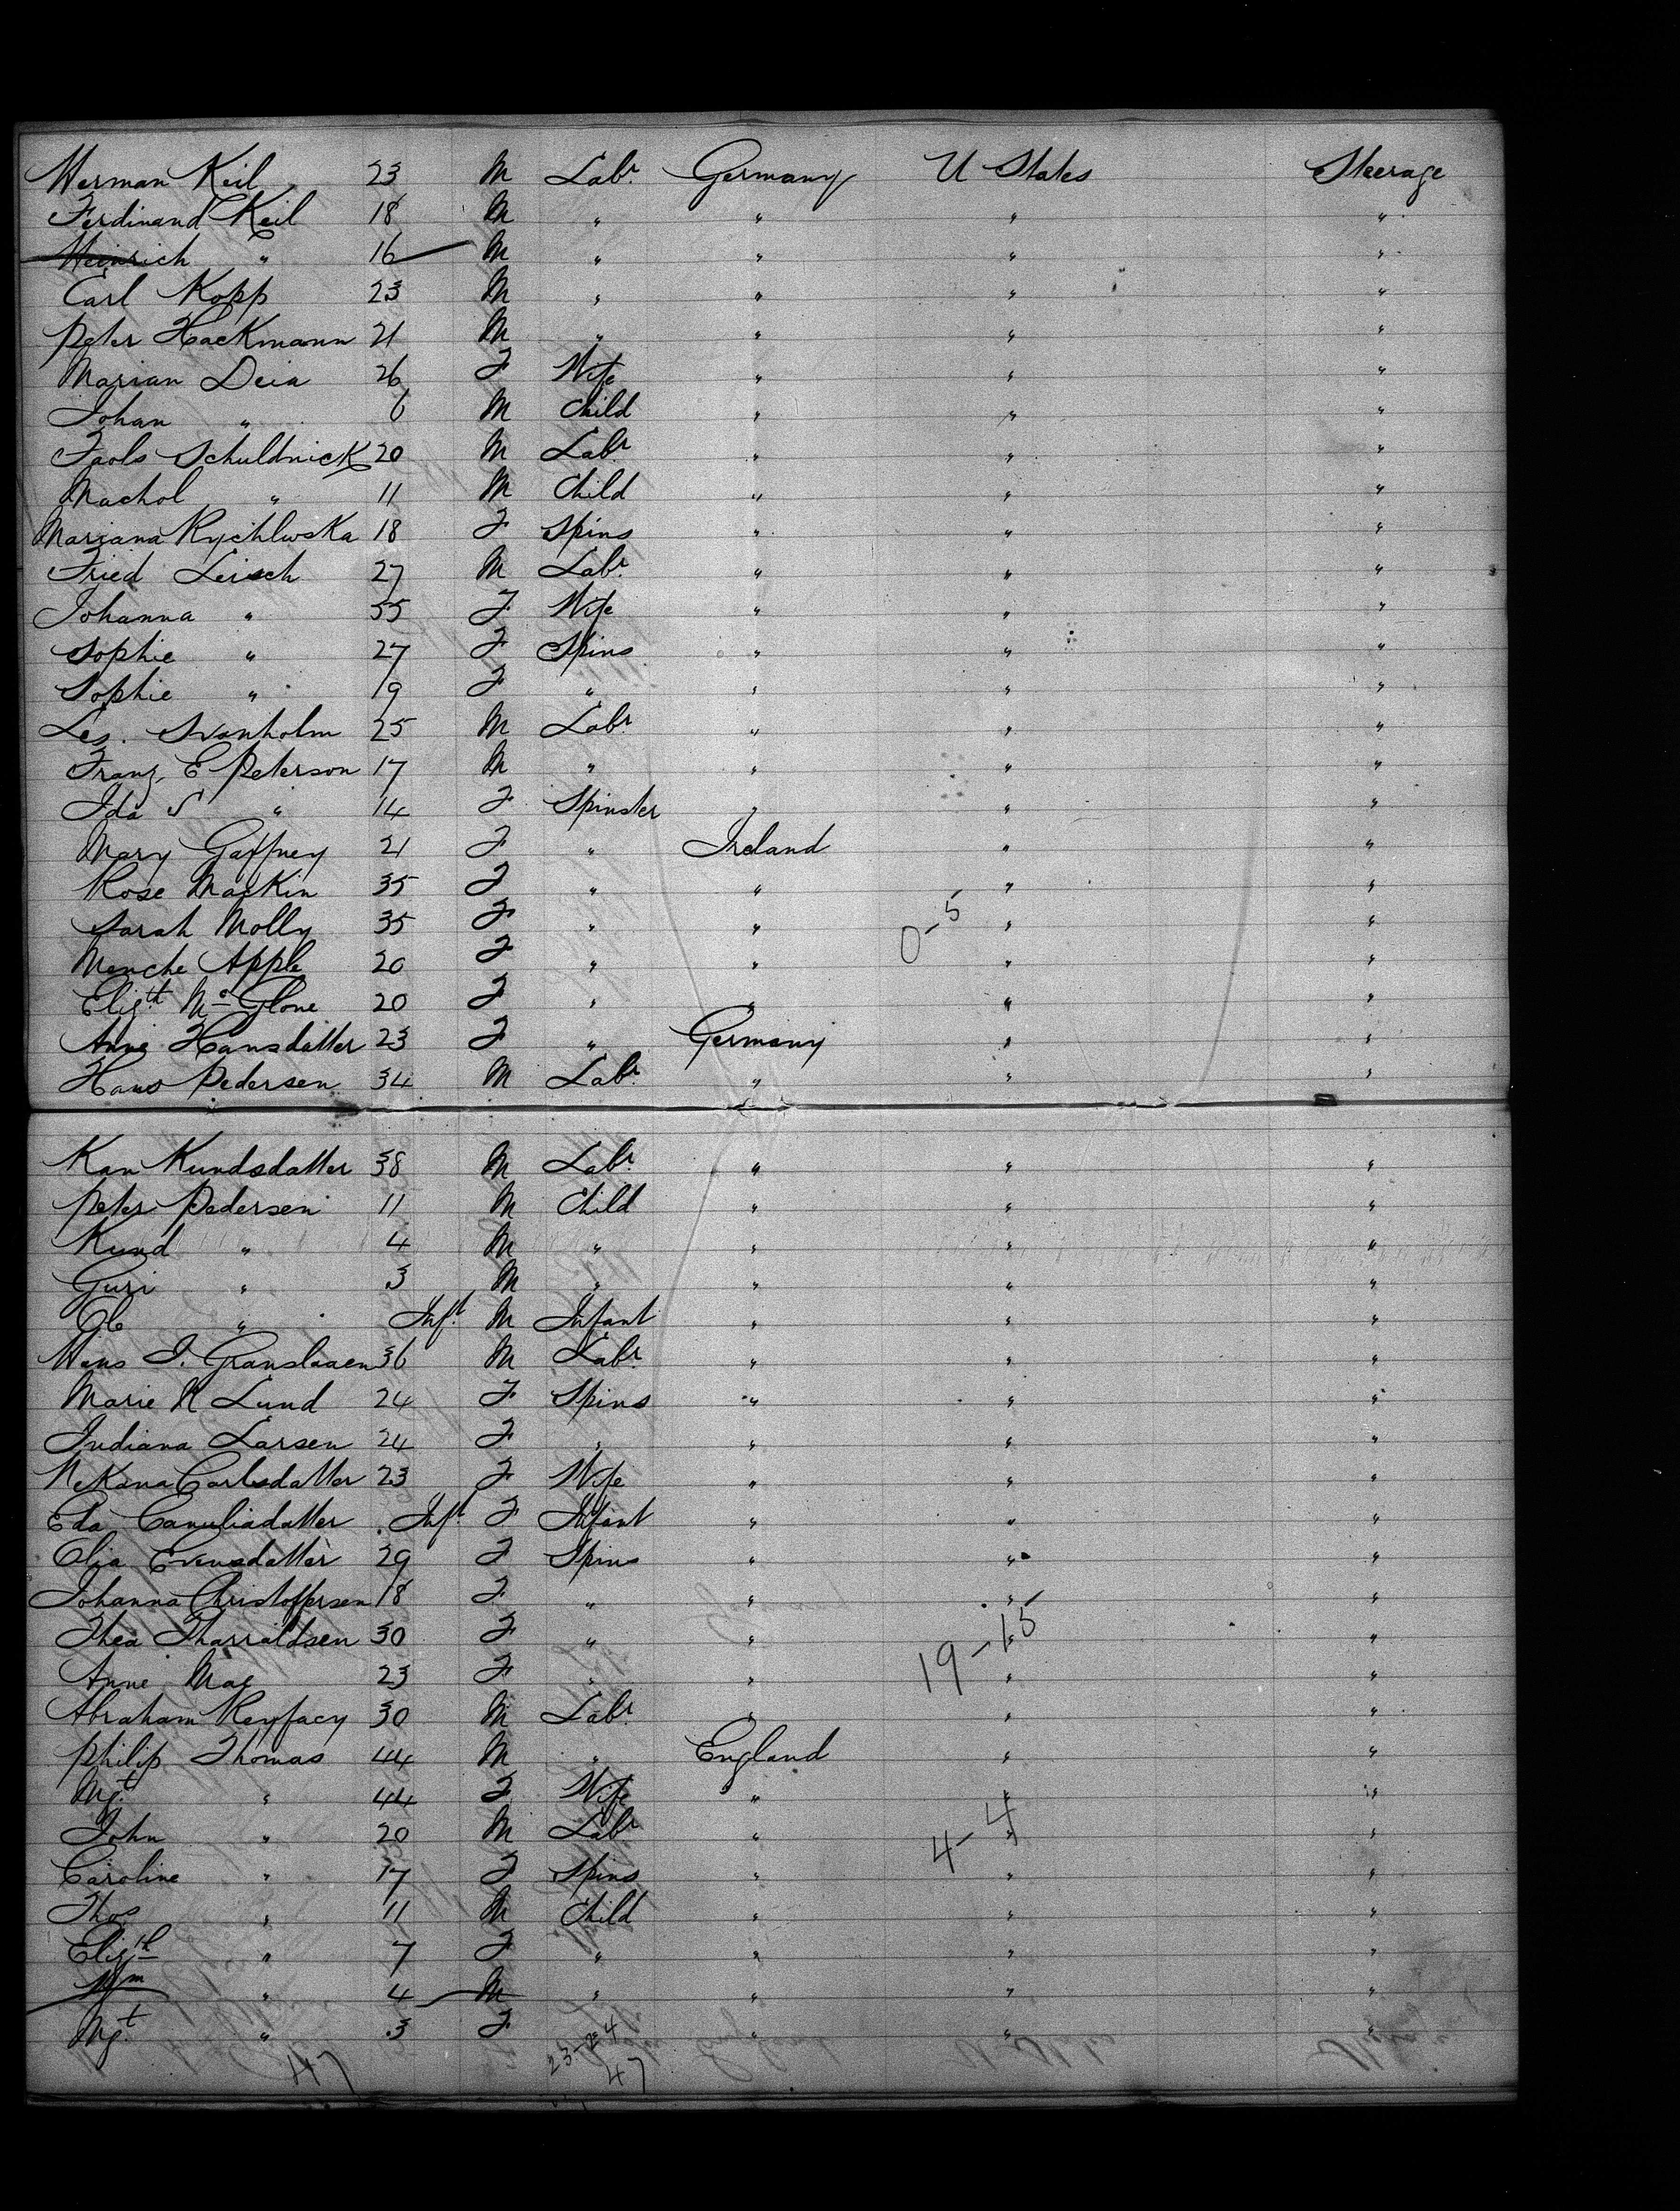 Herman Keil 23 M Labr Germany U States Steerage
Ferdinand Keil 18 M " " " "
Heinrich " 16 M " " " "
Carl Kopp 23 M " " " "
Peter Hackmann 21 M " " " "
Marian Deia 26 F Wife " " "
Johan " 6 M Child " " "
Faols Schuldnick 20 M Labr " " "
Machol " 11 M Child " " "
Mariana Rychlwska 18 F Spins " " "
Fried Leisch 27 M Labr " " "
Johanna " 55 F Wife " " "
Sophie " 27 F Spins " " "
Sophie " 19 F " " " "
Les. Svanholm 25 M Labr " " "
Franz E Peterson 17 M " " " "
Ida S " 14 F Spinster " " "
Mary Gaffney 21 F " Ireland " "
Rose Mackin 35 F " " " "
Sarah Molly 35 F " " 0-5 " "
Menche Apple 20 F " " " "
Elizth McGlone 20 F " " " "
Anne Hansdatter 23 F " Germany " "
Hans Pedersen 34 M Labr " " "
Kan Kundsdatter 38 M Labr " " "
Peter Pedersen 11 M Child " " "
Kund " 4 M " " " "
Guri " 3 M " " " "
Ole " Inft M Infant " " "
Hans I. Granslaaen 36 M Labr " " "
Marie K Lund 24 F Spins " " "
Indiana Larsen 24 F " " " "
Nekana Carlsdatter 23 F Wife " " "
Eda Canuliadatter Inft F Infant " " "
Olia Evensdatter 29 F Spins " " "
Johanna Christoffersen 18 F " " " "
Thea Tharraldsen 30 F " " " "
19-15
Anne Mae 23 F " " " "
Abraham Reyfacy 30 M Labr " " "
Philip Thomas 44 M " England " "
Mgt " 44 F Wife " " "
John " 20 M Labr " 4-4 " "
Caroline " 17 F Spins " " "
Thos " 11 M Child " " "
Elizth " 7 F " " " "
Wm " 4 M " " " "
Mgt " 3 F " " "
47 23-24
47